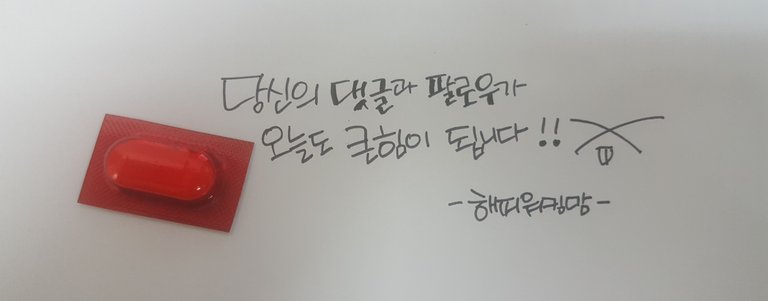 당신의 댓글과 팔로우가
오늘도 큰힘이 됩니다!!
-해피워킹맘-